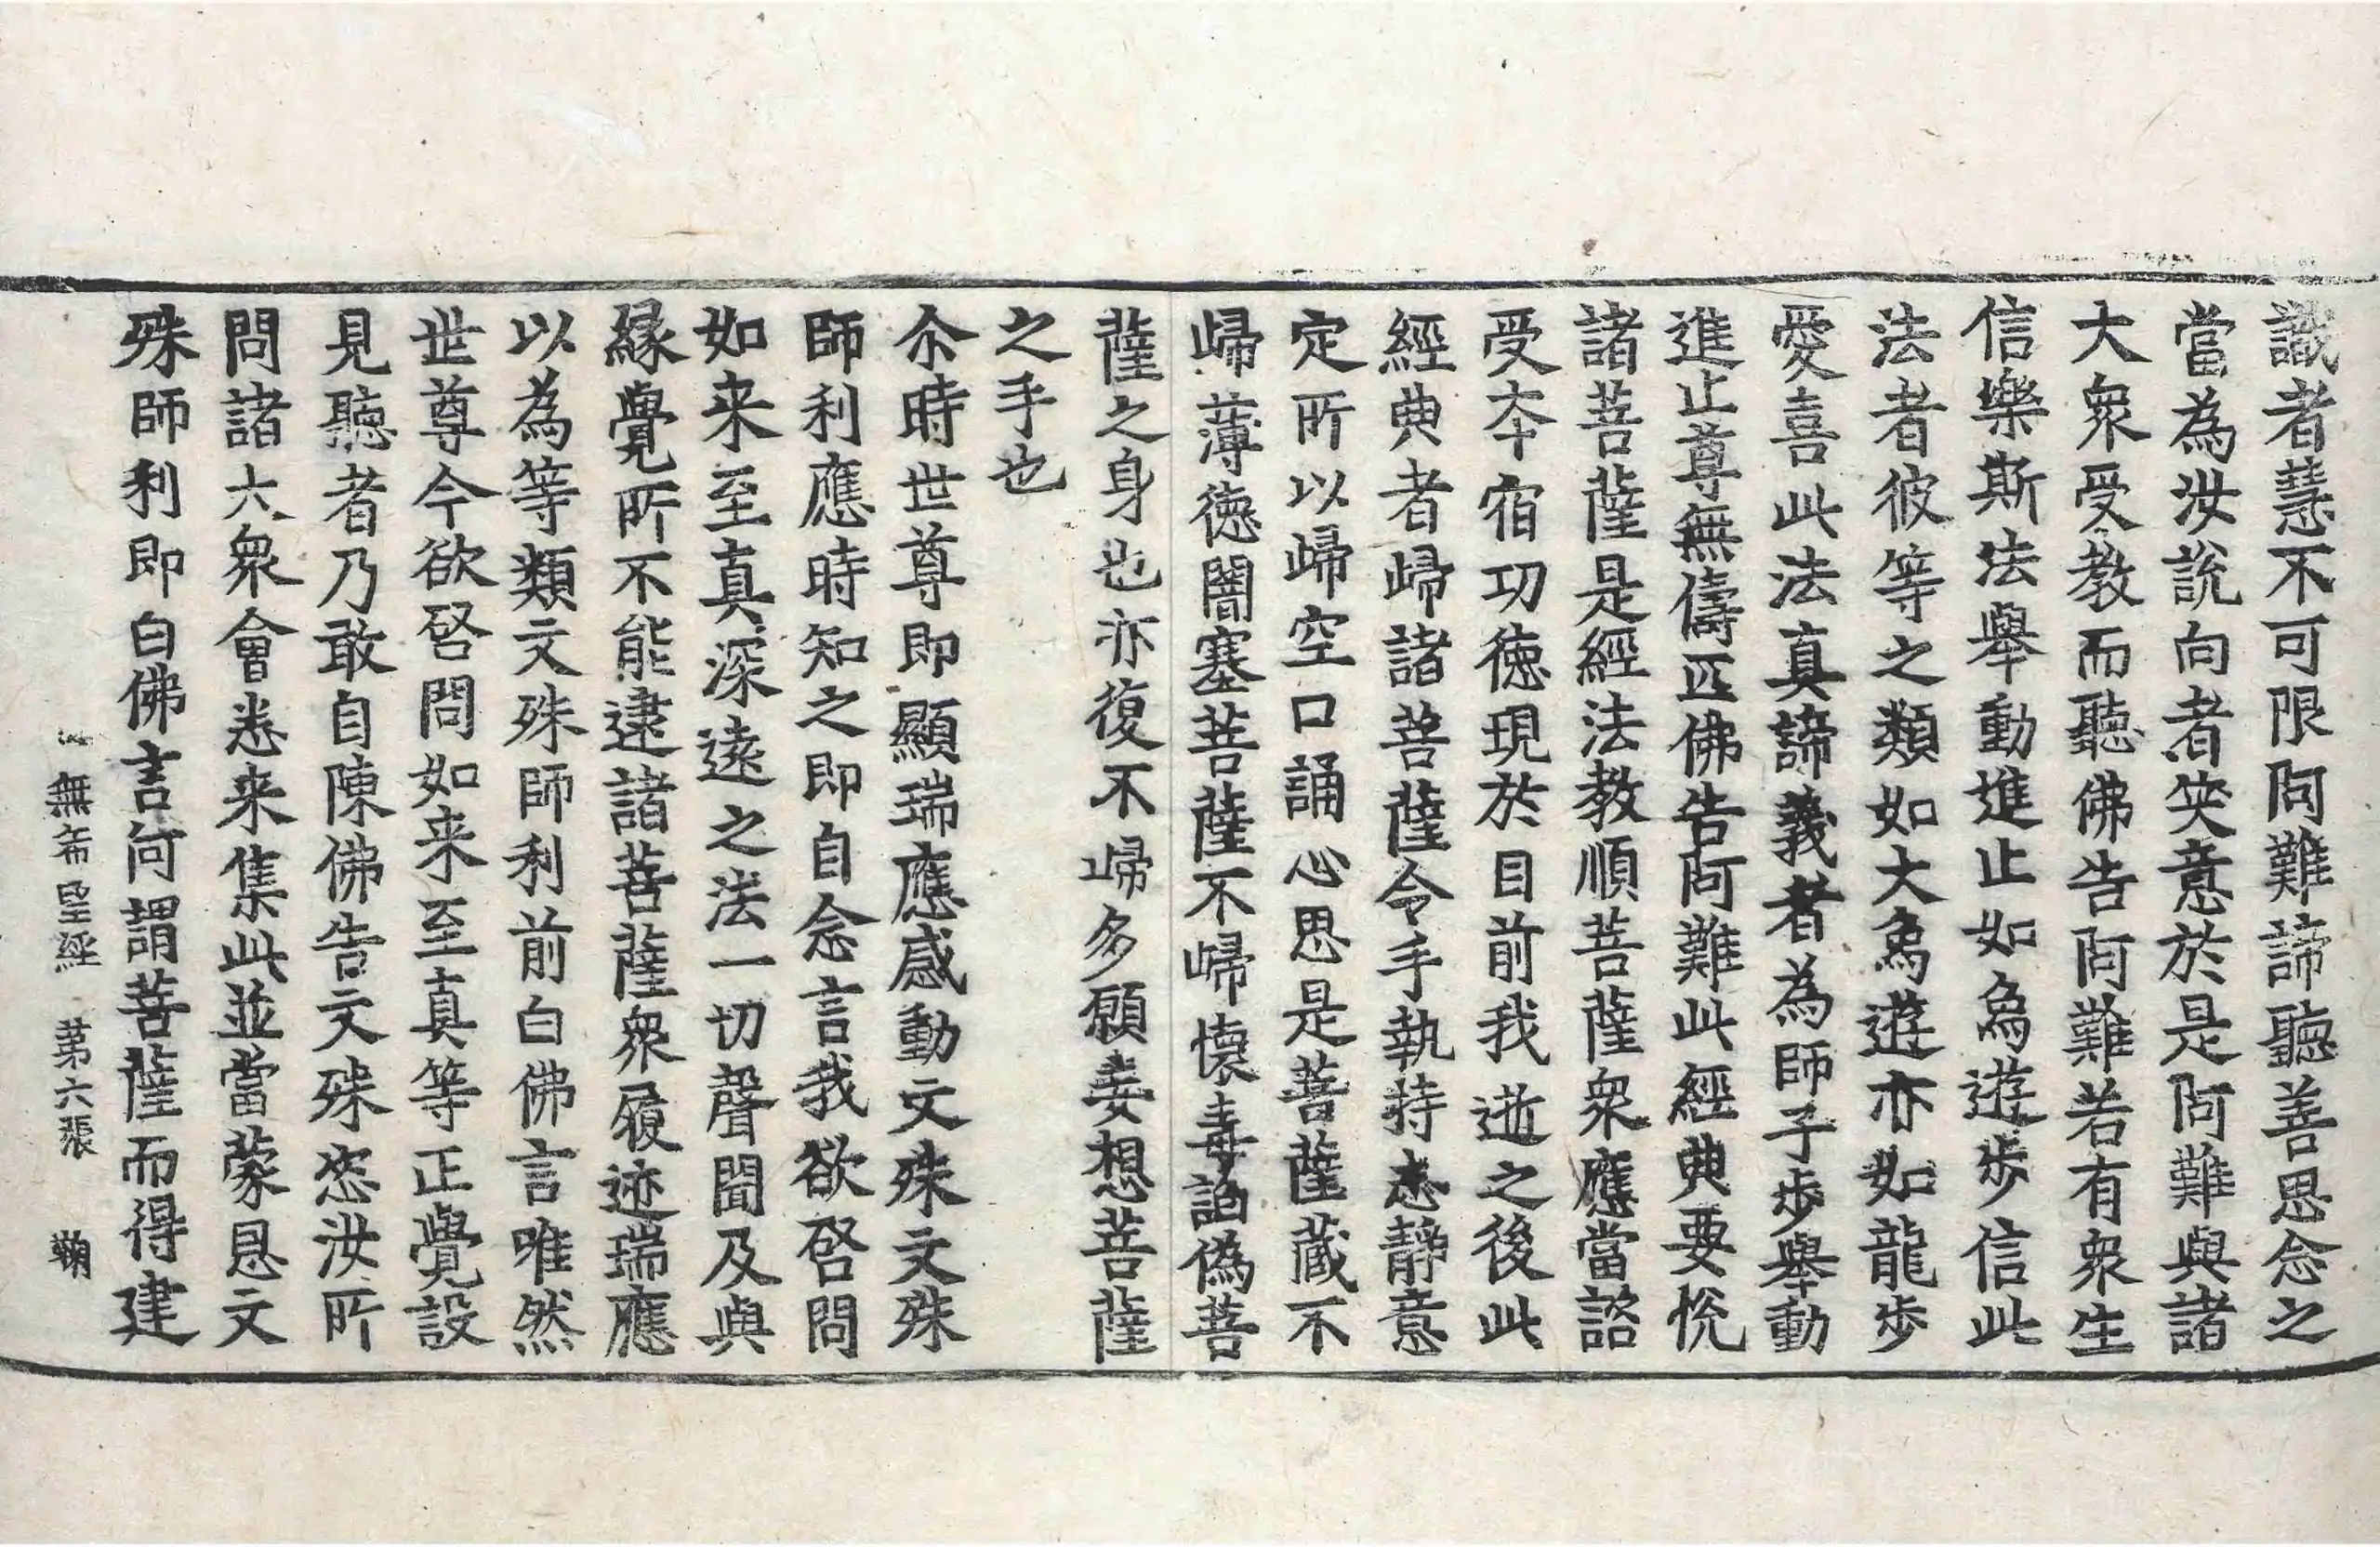 識者慧不可限阿難諦聽善思念之
當為汝說向者㗛意於是阿難與諸
大衆受教而聽佛告阿難若有衆生
信樂斯法舉動進止如爲遊歩信此
法者彼等之類如大爲遊亦如龍歩
愛喜此法真諦義者為師子歩舉動
進止尊無儔匹佛告阿難此經典要悅
諸菩薩是經法教順菩薩衆應當諮
受夲宿功徳現於目前我逝之後此
經典者歸諸菩薩令手執持志靜意
定所以歸空口誦心思是菩薩蔵不
歸薄徳闇塞菩薩不歸懷毒謟偽菩
薩之身也亦復不歸多願妄想菩薩
之手也
尒時世尊即顯瑞應感動文殊文殊
師利應時知之即自念言我欲啓問
如来至真深遠之法一切聲聞及與
縁覺所不能逮諸菩薩衆履迹瑞應
以為等類文殊師利前白佛言唯然
世尊今欲啓問如来至真等正覺設
見聽者乃敢自陳佛告文殊恣汝所
問諸大衆會悉来集此並當蒙恩文
殊師利即白佛言何謂菩薩而得建
無希望經 苐六張 鞠